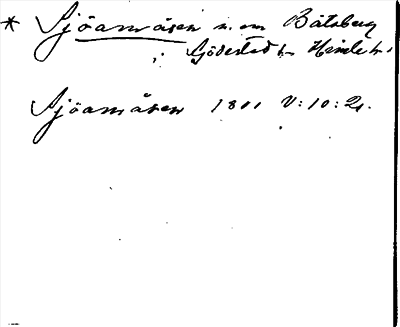 * Sjöarnåsen n. om Båtsberg
i Gödestad sn Himle hd
Sjöarnåsen 1801 V:10:21.